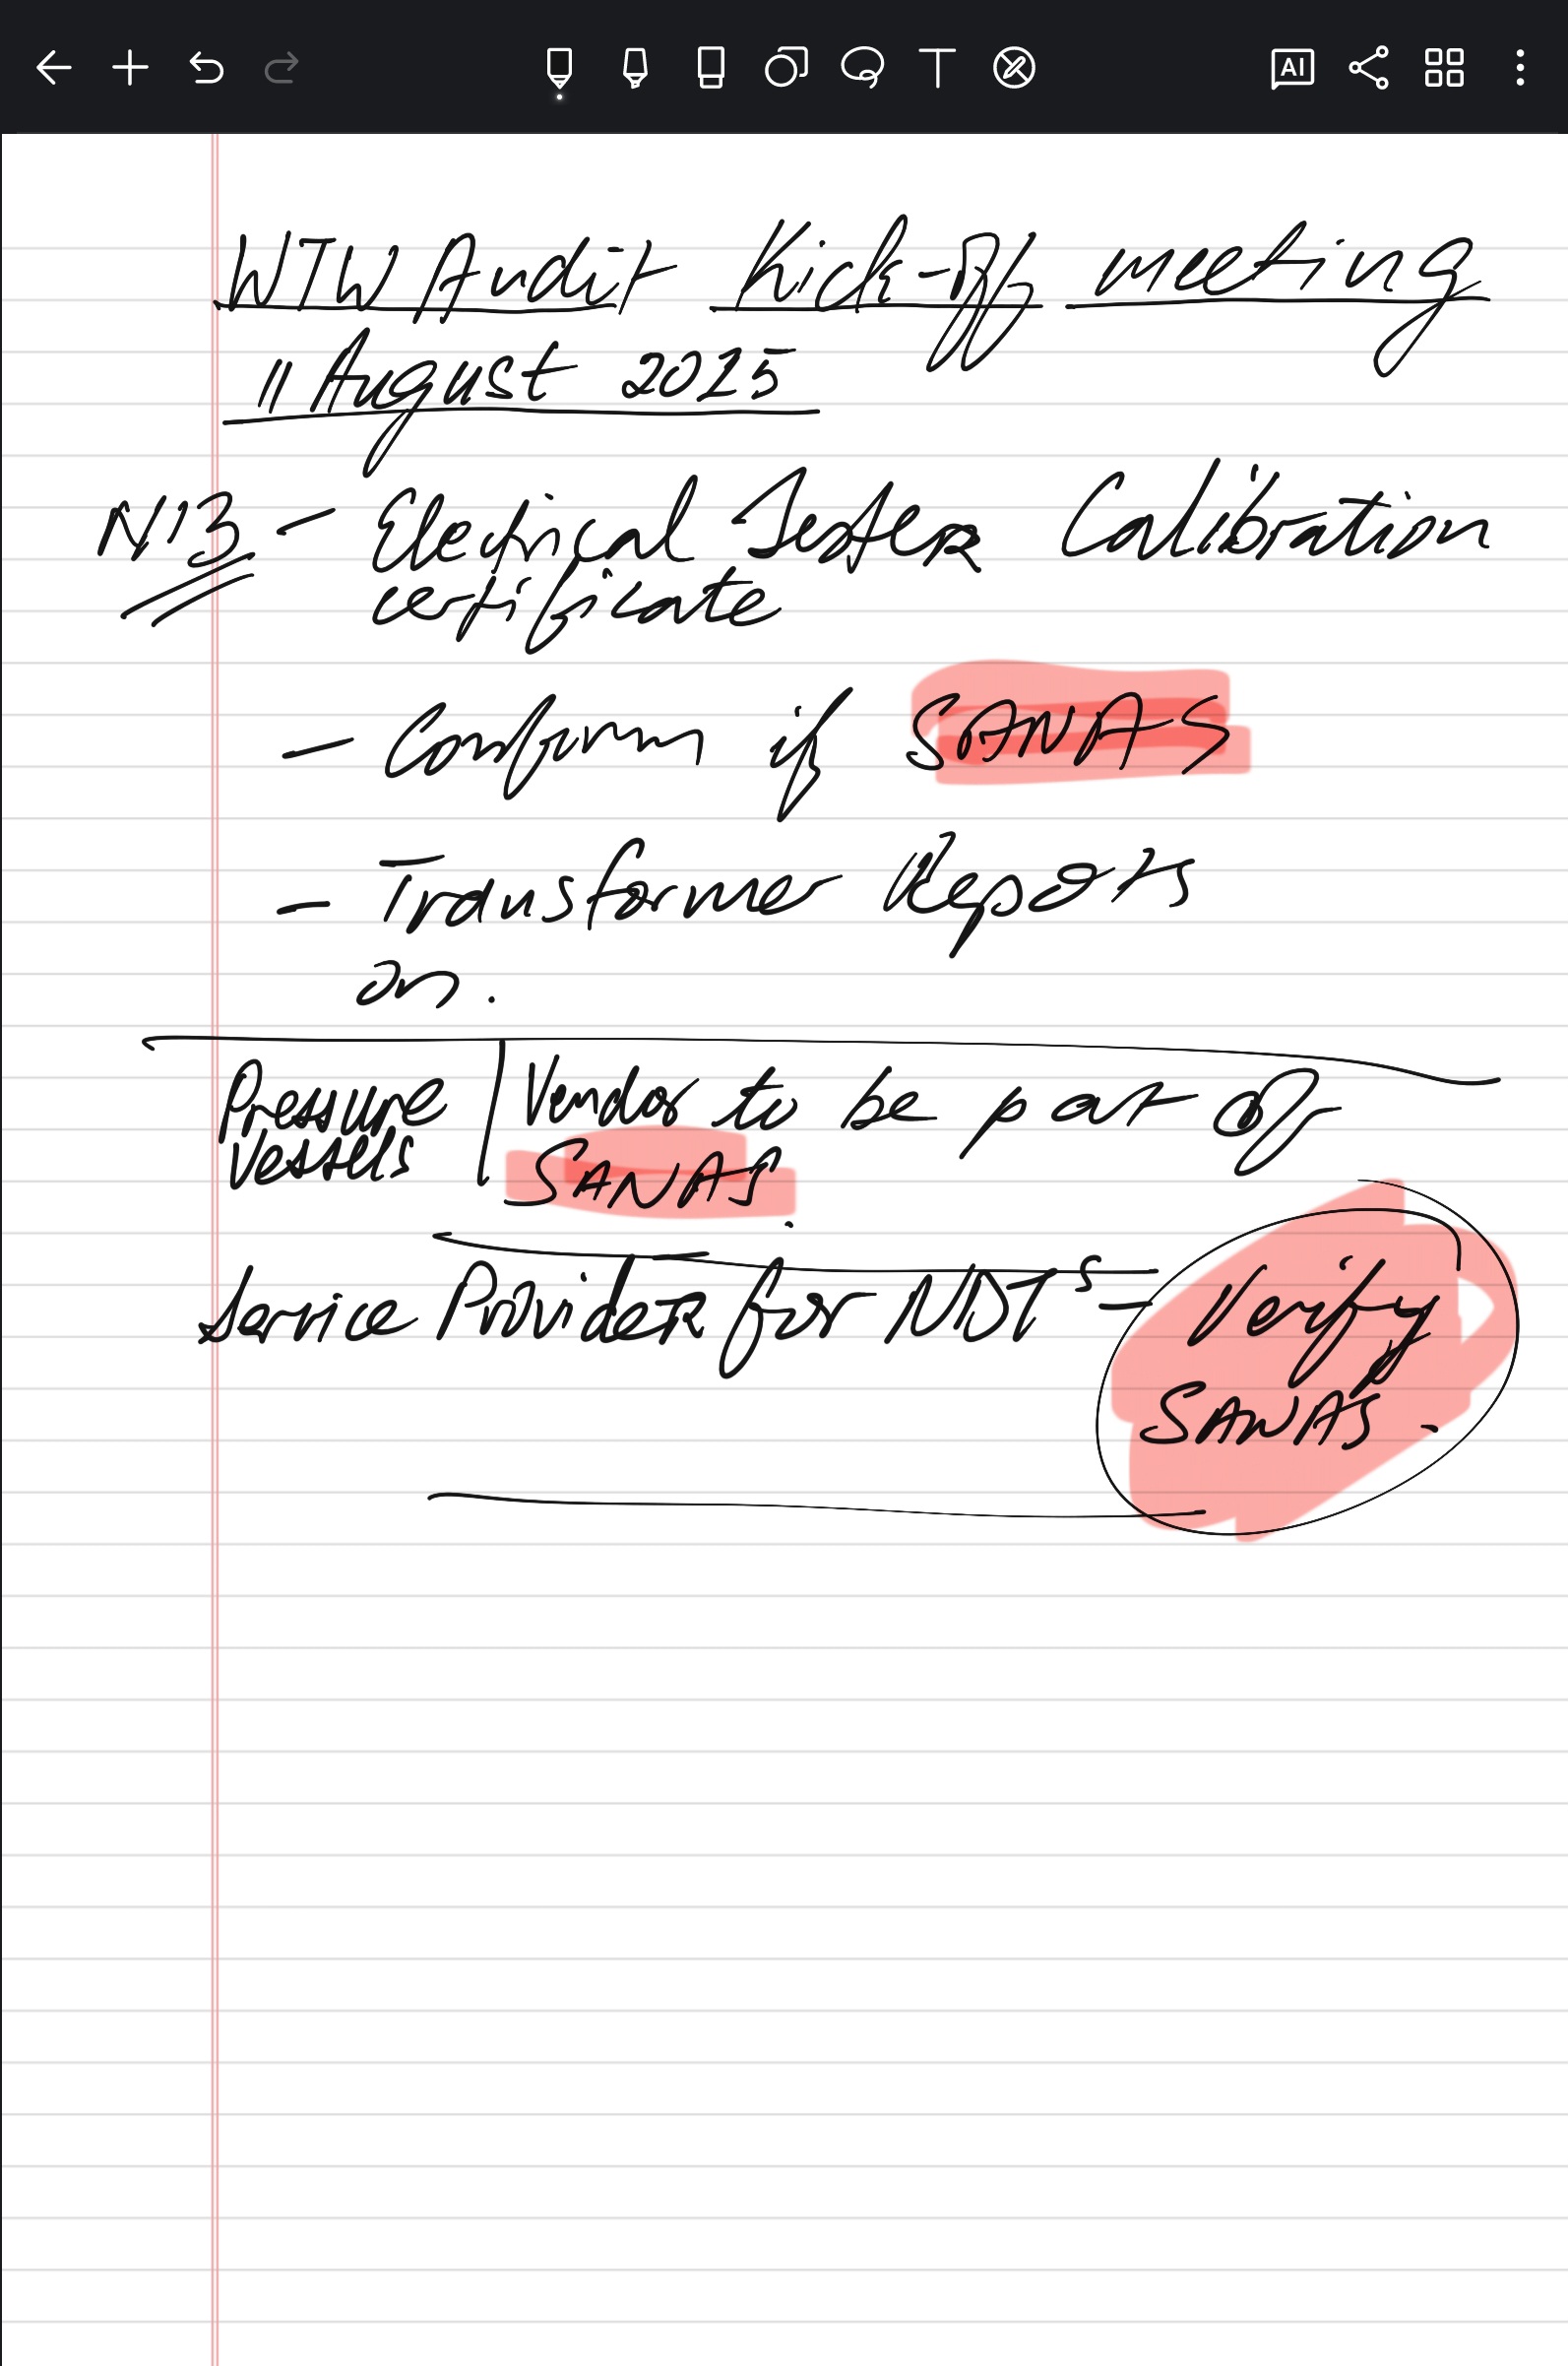 WTW Audit Kick-off meeting
11 August 2025
N13 - Electrical Tester Calibration
certificate
- Confirm if SANAS
- Transformer Reports
on.
Pressure Vessels | Vendor to be part of
SANAS.
Service Provider for NDT's - Verify
SANAS.